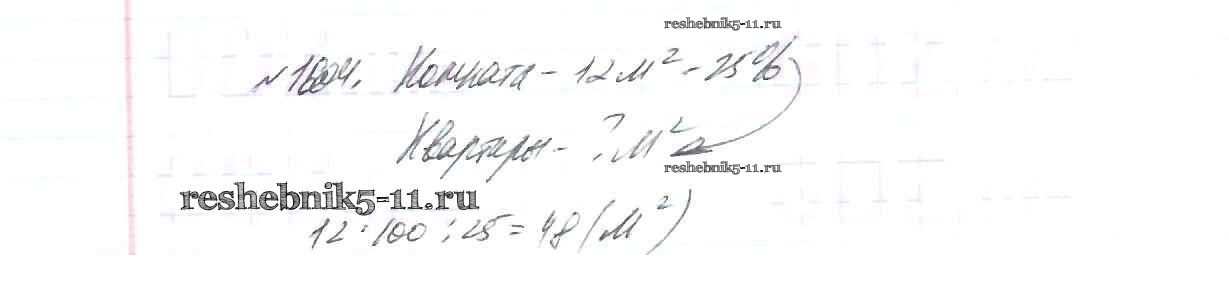 reshebnik5-11.ru
№1604. Комната - 12 м² - 25%
Квартиры - ? м²
reshebnik5-11.ru
reshebnik5-11.ru
12·100:25=48(м²)